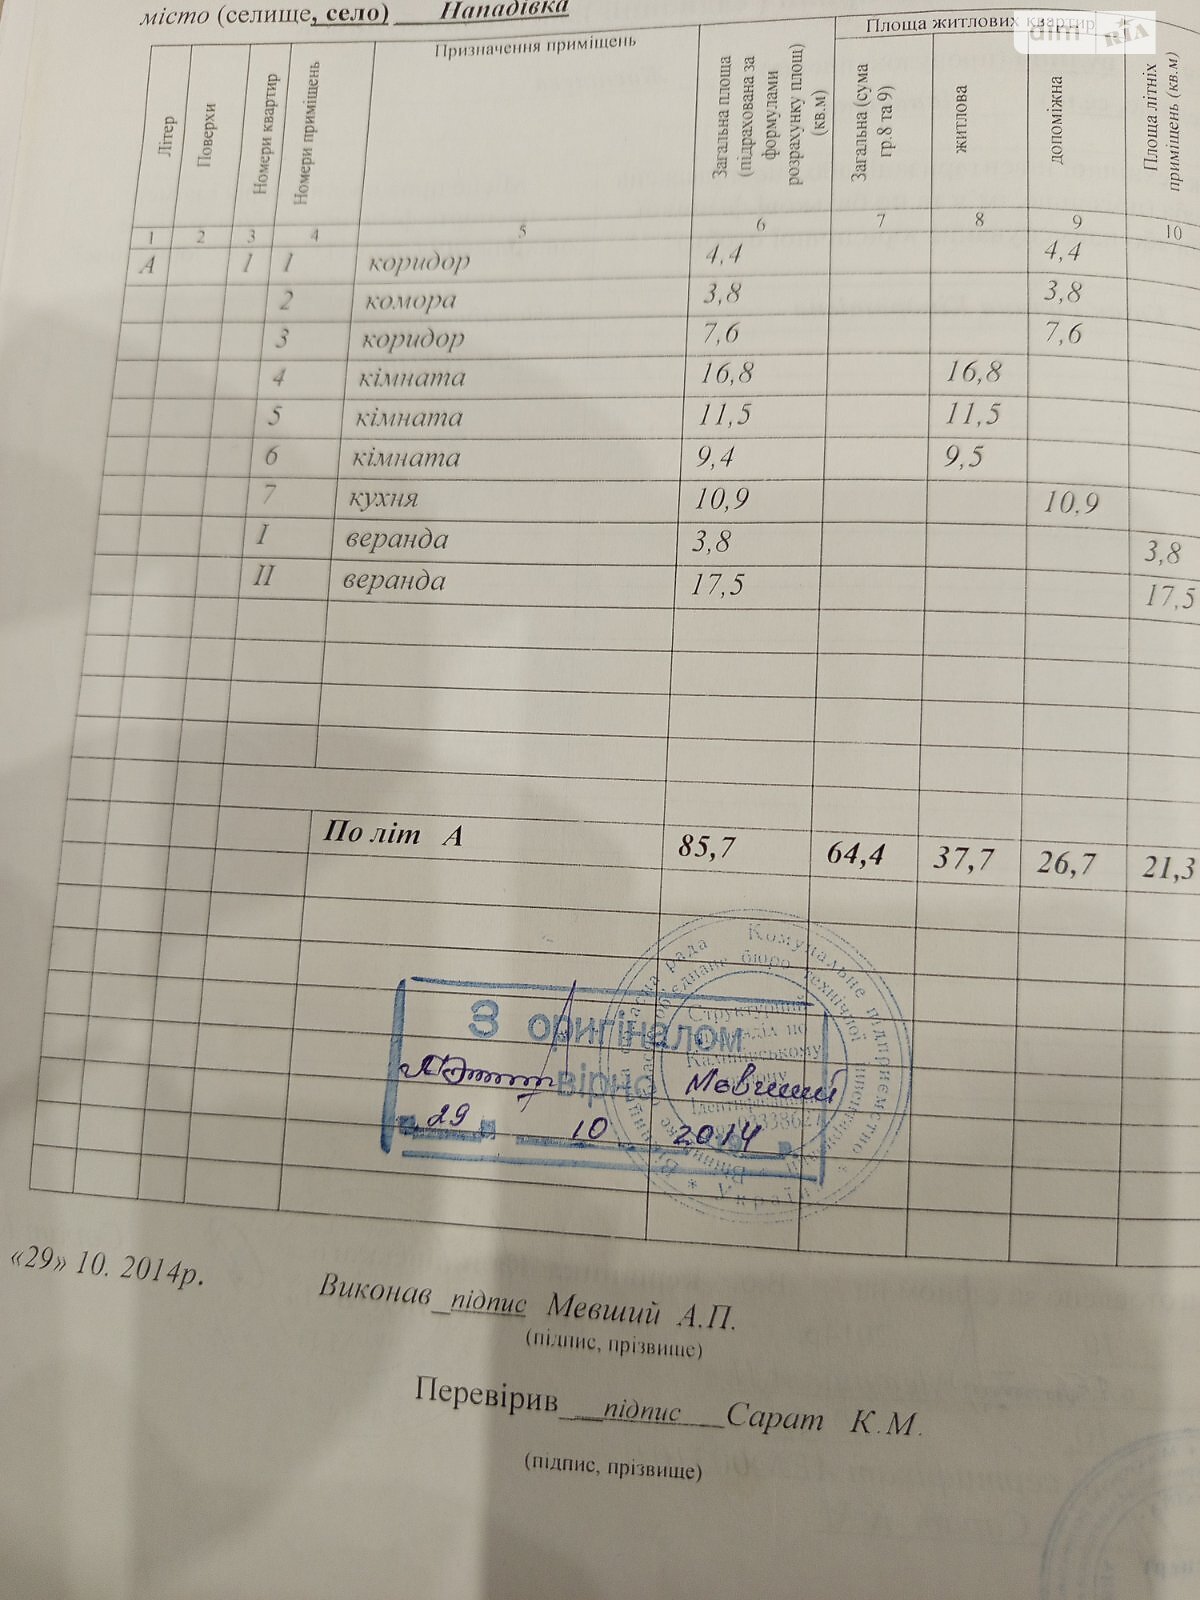 місто (селище, село) Нападівка
dim RIA
Літер
Поверхи
Номери квартир
Номери приміщень
Призначення приміщень
Загальна площа (підрахована за формулами розрахунку площ) (кв.м)
Площа житлових квартир
Загальна (сума гр.8 та 9)
житлова
допоміжна
Площа літніх приміщень (кв.м)
1 2 3 4 5 6 7 8 9 10
А 1 1 коридор 4,4 4,4
2 комора 3,8 3,8
3 коридор 7,6 7,6
4 кімната 16,8 16,8
5 кімната 11,5 11,5
6 кімната 9,4 9,5
7 кухня 10,9 10,9
I веранда 3,8 3,8
II веранда 17,5 17,5
По літ А 85,7 64,4 37,7 26,7 21,3
З оригіналом
вірно Мевший
29 10 2014 р.
Комунальне підприємство
бюро технічної інвентаризації
Структурний
Україна
«29» 10. 2014р.
Виконав підпис Мевший А.П.
(підпис, прізвище)
Перевірив підпис Сарат К.М.
(підпис, прізвище)